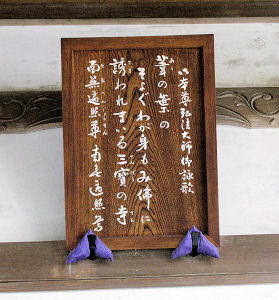 御本尊弘法大師御詠歌
葦の葉の
そよぐわが身もみ佛に
誘われまいる三寶の寺
南無遍照尊 南無遍照尊